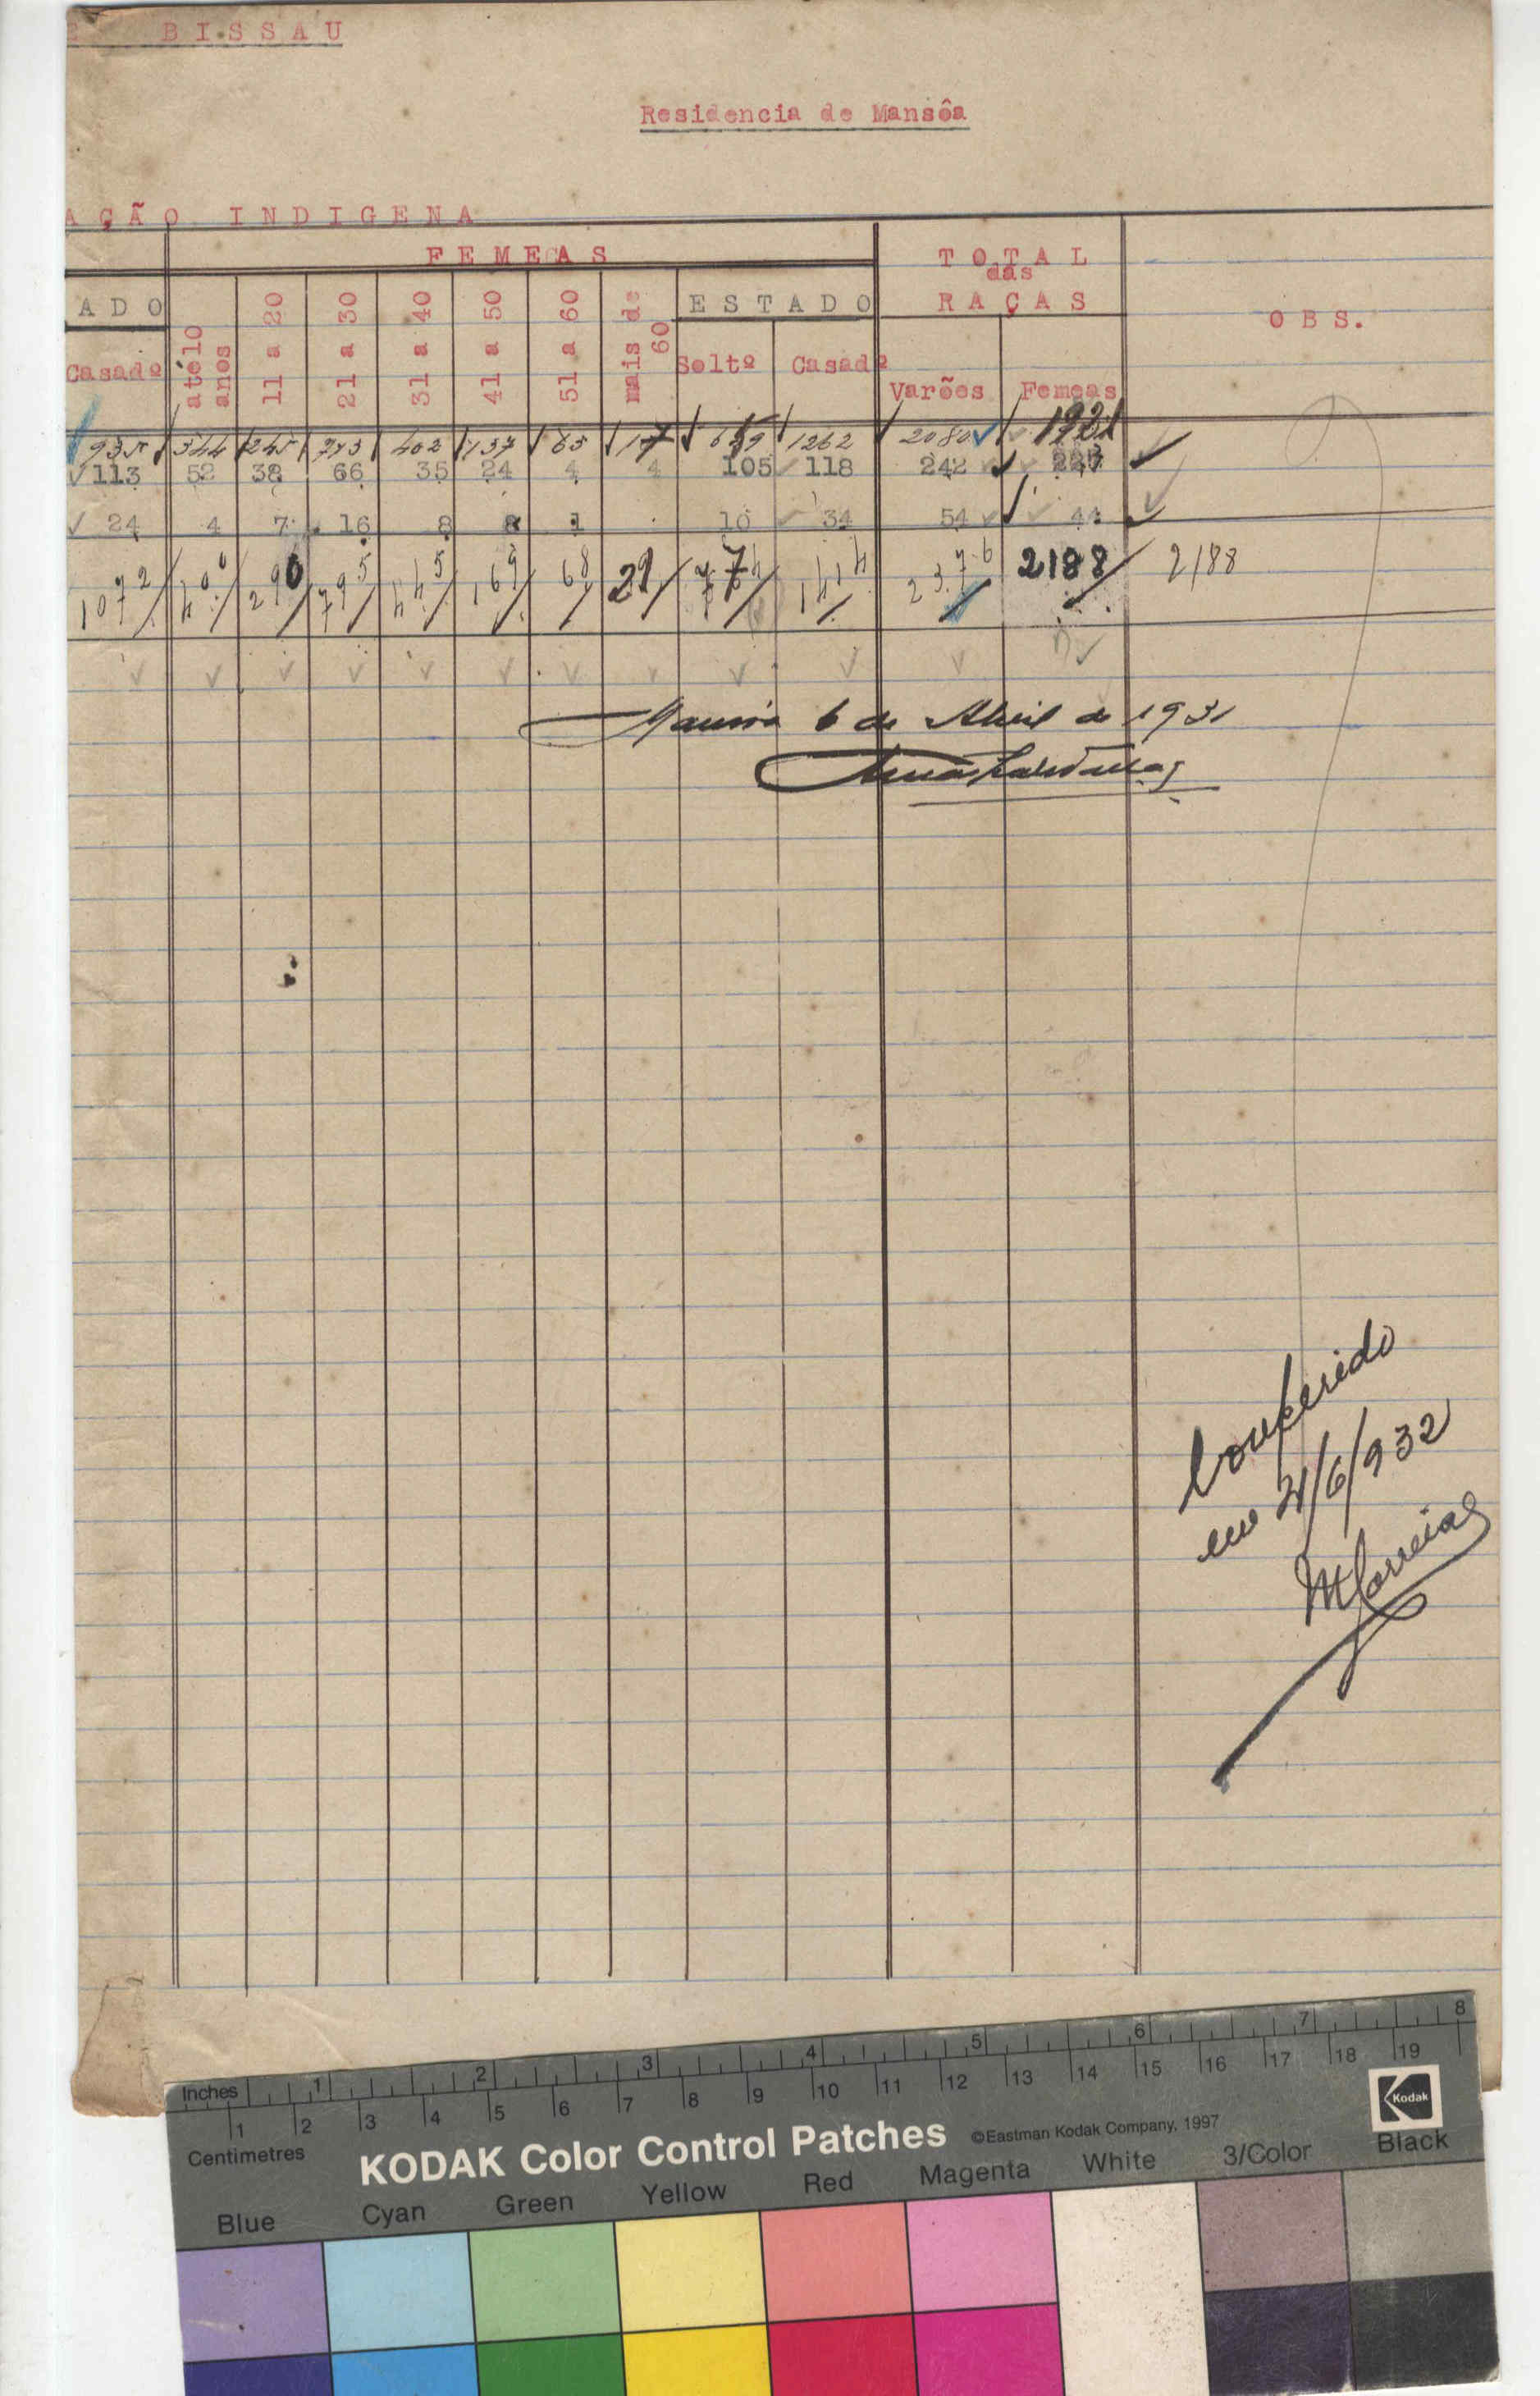 E BISSAU
Residencia de Mansôa
AÇÃO INDIGENA
FEMEAS
TOTAL
das
RAÇAS
OBS.
ADO
Casadº
até 10 anos
11 a 20
21 a 30
31 a 40
41 a 50
51 a 60
mais de 60
ESTADO
Soltº
Casadº
Varões
Femeas
935 344 245 713 402 137 63 17 659 1262 2080 1921
113 52 38 66 35 24 4 4 105 118 242
24 4 7 16 8 8 1 10 34 54 44
1072 400 290 795 445 169 68 21 774 1414 2376 2188 2188
Mansôa 6 de Abril de 1931
Conferido
em 21/6/932
MCorreia
Inches 1 2 3 4 5 6 7 8
1 2 3 4 5 6 7 8 9 10 11 12 13 14 15 16 17 18 19
Centimetres
KODAK Color Control Patches ©Eastman Kodak Company, 1997
Kodak
Blue Cyan Green Yellow Red Magenta White 3/Color Black